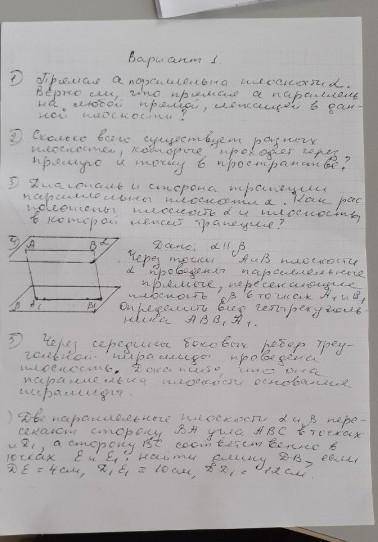 Вариант 1.
1) Прямая а параллельна плоскости α.
Верно ли, что прямая а параллель
на любой прямой, лежащей в дан-
ной плоскости?
2) Сколько всего существует разных
плоскостей, которые проходят через
прямую и точку в пространстве?
3) Диагональ и сторона трапеции
параллельны плоскости α. Как рас
положены плоскость α и плоскость,
в которой лежит трапеция?
4) A B α
β A1 B1
Дано: α || β
Через точки А и В плоскости
α проведены параллельные
прямые, пересекающие
плоскость β в точках А1 и В1
Определить вид четырехуголь-
ника АВВ1А1.
5) Через середины боковых ребер треу-
гольной пирамиды проведена
плоскость. Докажите, что она
параллельна плоскости основания
пирамиды.
) Две параллельные плоскости α и β пере-
секают сторону ВА угла АВС в точках
и D1, а сторону ВС соответственно в
точках Е и Е1. Найти длину DB, если
DE = 4 см, D1E1 = 10 см, DD1 = 12 см.